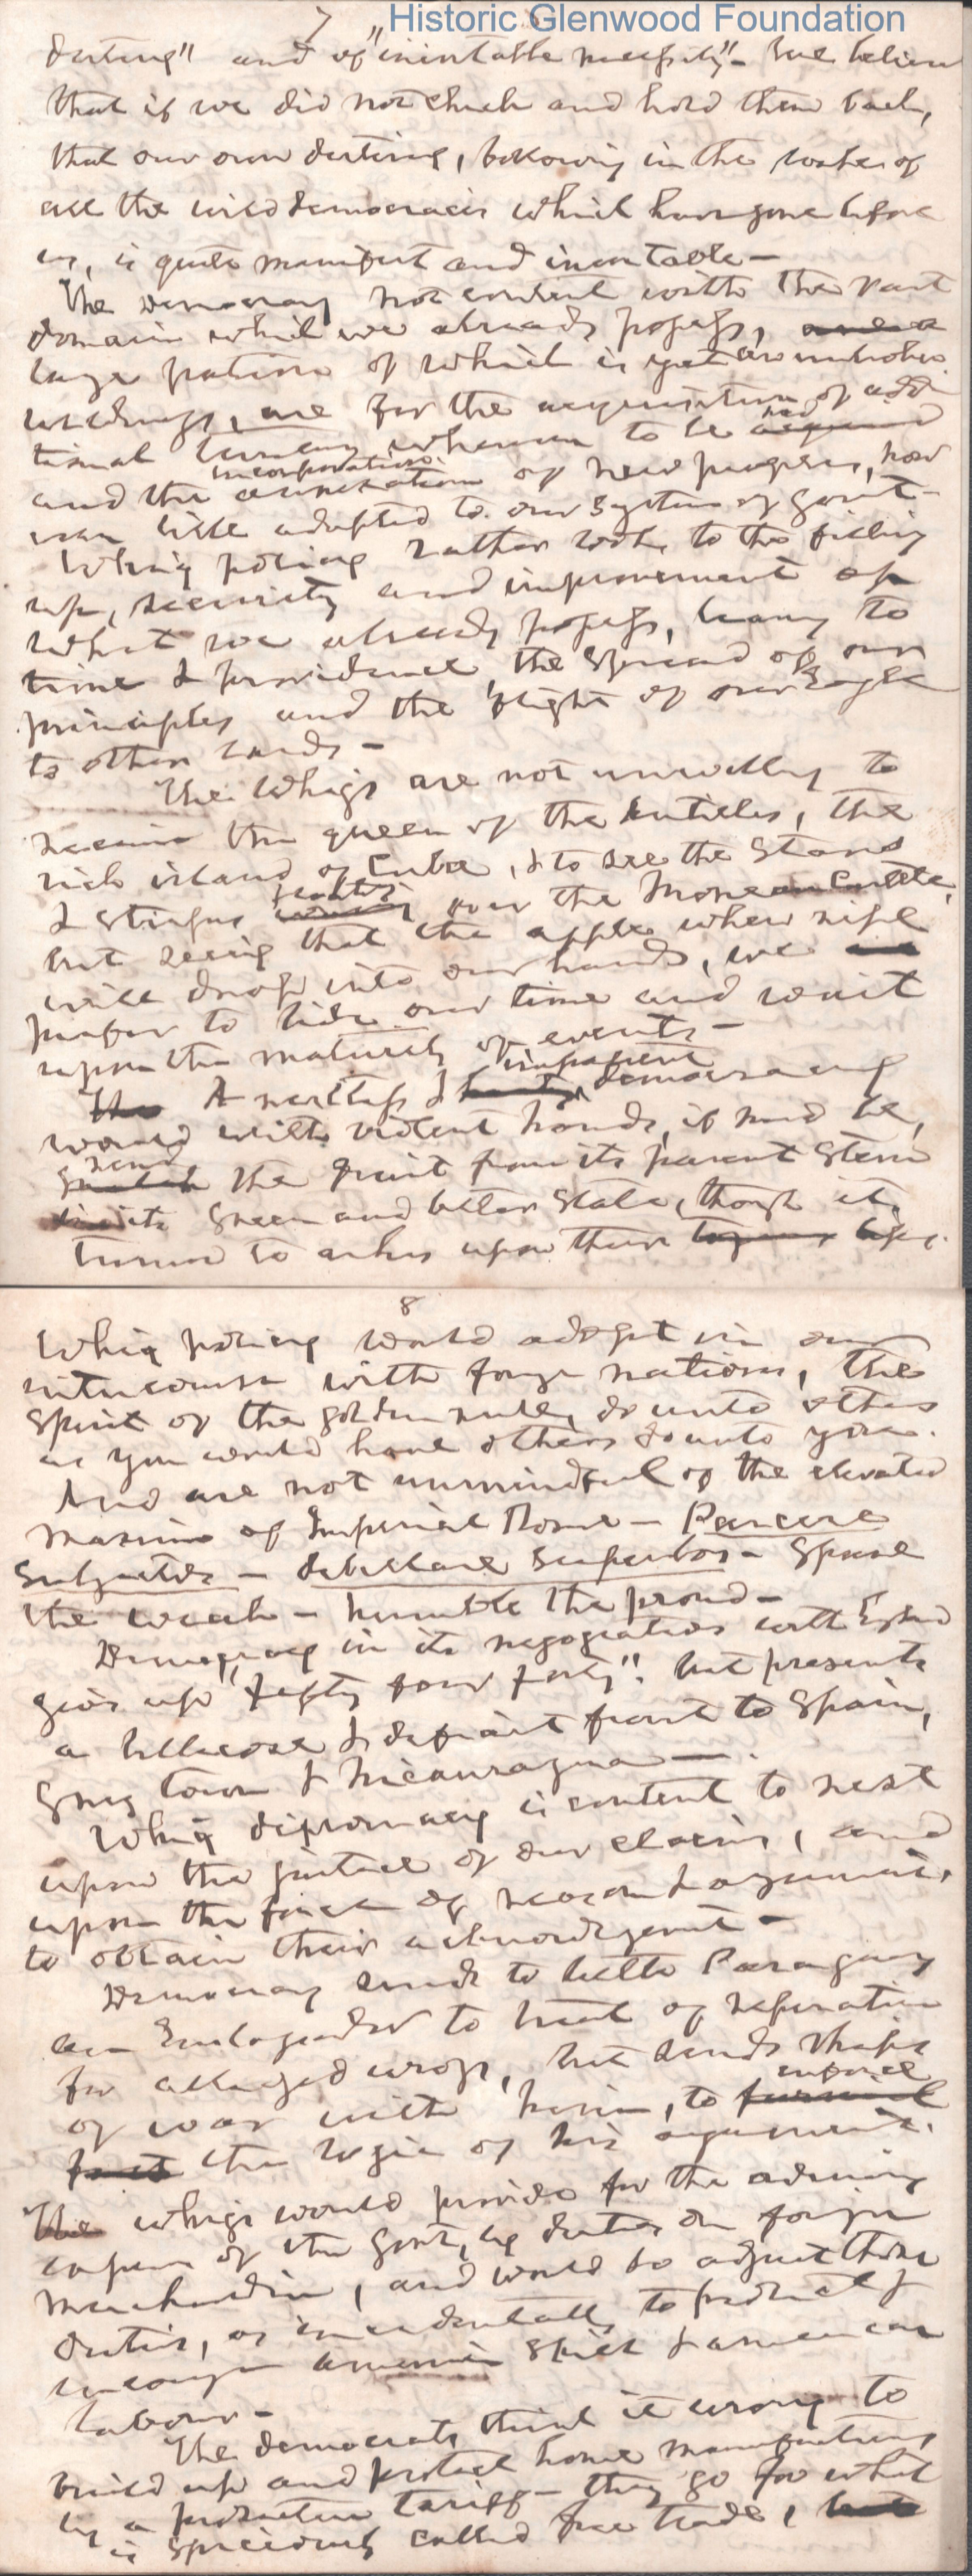 Historic Glenwood Foundation
7
destiny" and of "inevitable necessity" - We believe
that if we did not check and hold them back,
that our own destiny, following in the wake of
all the wild democracies which have gone before
us, is quite manifest and inevitable -
The democracy not content with the vast
domain which we already possess,
large portion of which is yet an unbroken
wilderness, are for the acquisition of addi
tional territory wherever to be had
and the incorporation of new peoples, how
ever little adapted to our system of govt -
Whig policy rather looks to the filling
up, security and improvement of
what we already possess, leaving to
time & providence the spread of our
principles and the flight of our Eagle
to other lands -
The Whigs are not unwilling to
receive the queen of the Antilles, the
rich island of Cuba, & to see the Stars
& Stripes over the Moro Castle,
but seeing that the apple when ripe
will drop into our hands, we
prefer to bide our time and wait
upon the maturity of events -
A restless & impatient democracy
would with violent hands, if need be,
rend the fruit from its parent stem
green and bitter state, though it
turned to ashes upon their lips.
8
Whig policy would adopt in our
intercourse with foreign nations, the
spirit of the golden rule, do unto others
as you would have others do unto you.
And are not unmindful of the elevated
maxim of Imperial Rome - Parcere
Subjectis - debellare superbos - Spare
the weak - humble the proud -
Democracy in its negotiations with England
gives up "fifty four forty". but presents
a bellicose & defiant front to Spain,
Grey town & Nicauragua -
Whig diplomacy is content to rest
upon the justice of our claims, and
upon the force of reason & argument,
to obtain their acknowledgement -
Democracy sends to little Paraguay
an Embassador to treat of reparation
for alledged wrongs, but sends ships
of war with him, to enforce
the logic of his argument.
The whigs would provide for the
expenses of the Govt, by duties on foreign
Merchandise, and would so adjust those
duties, as incidentally to protect &
encourage American skill & american
labour -
The democrats think it wrong to
build up and protect home manufactures
by a protective tariff - they go for what
is speciously called free trade,